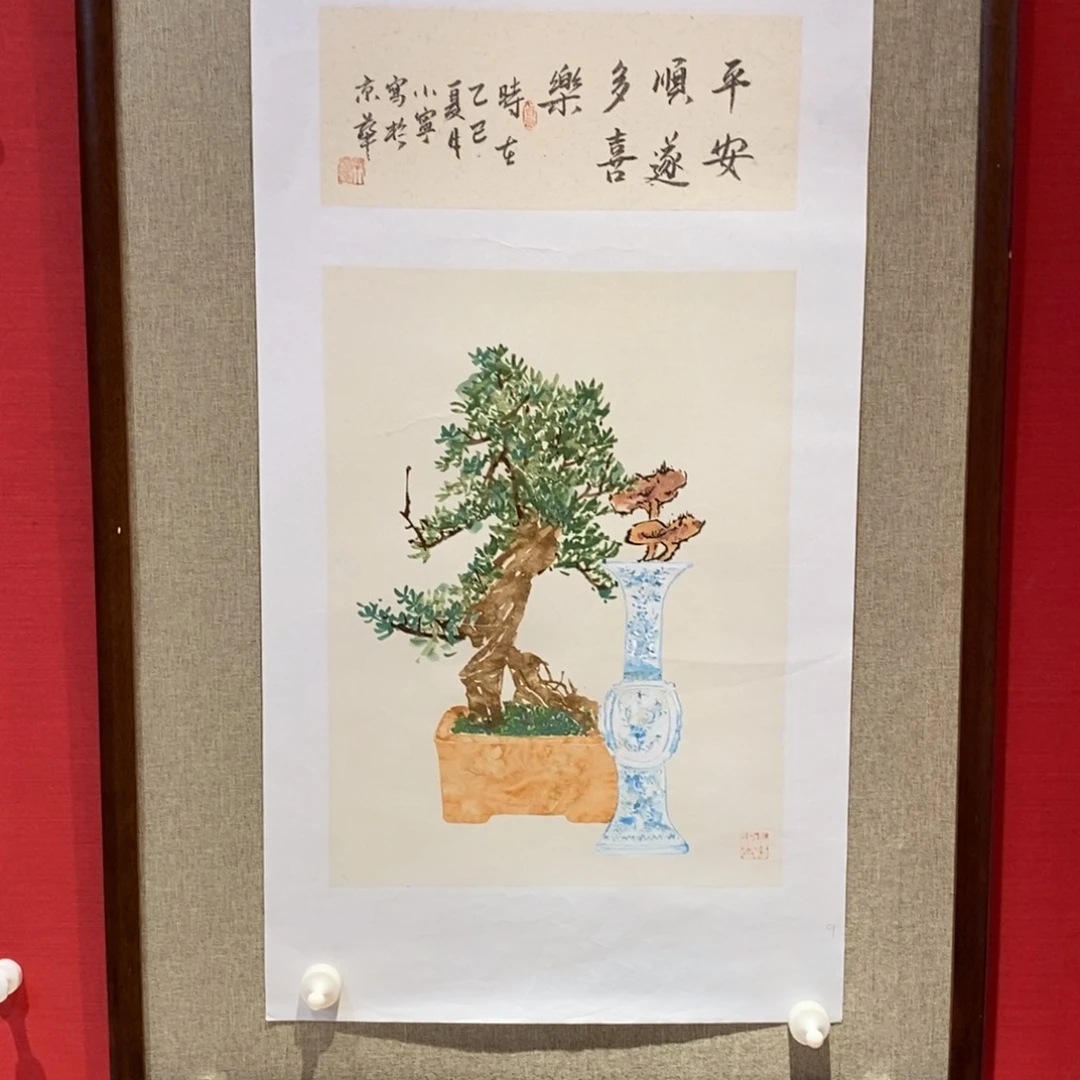 平安
順遂
多喜
樂
時在
乙巳
夏月
小寧
寫於
京華